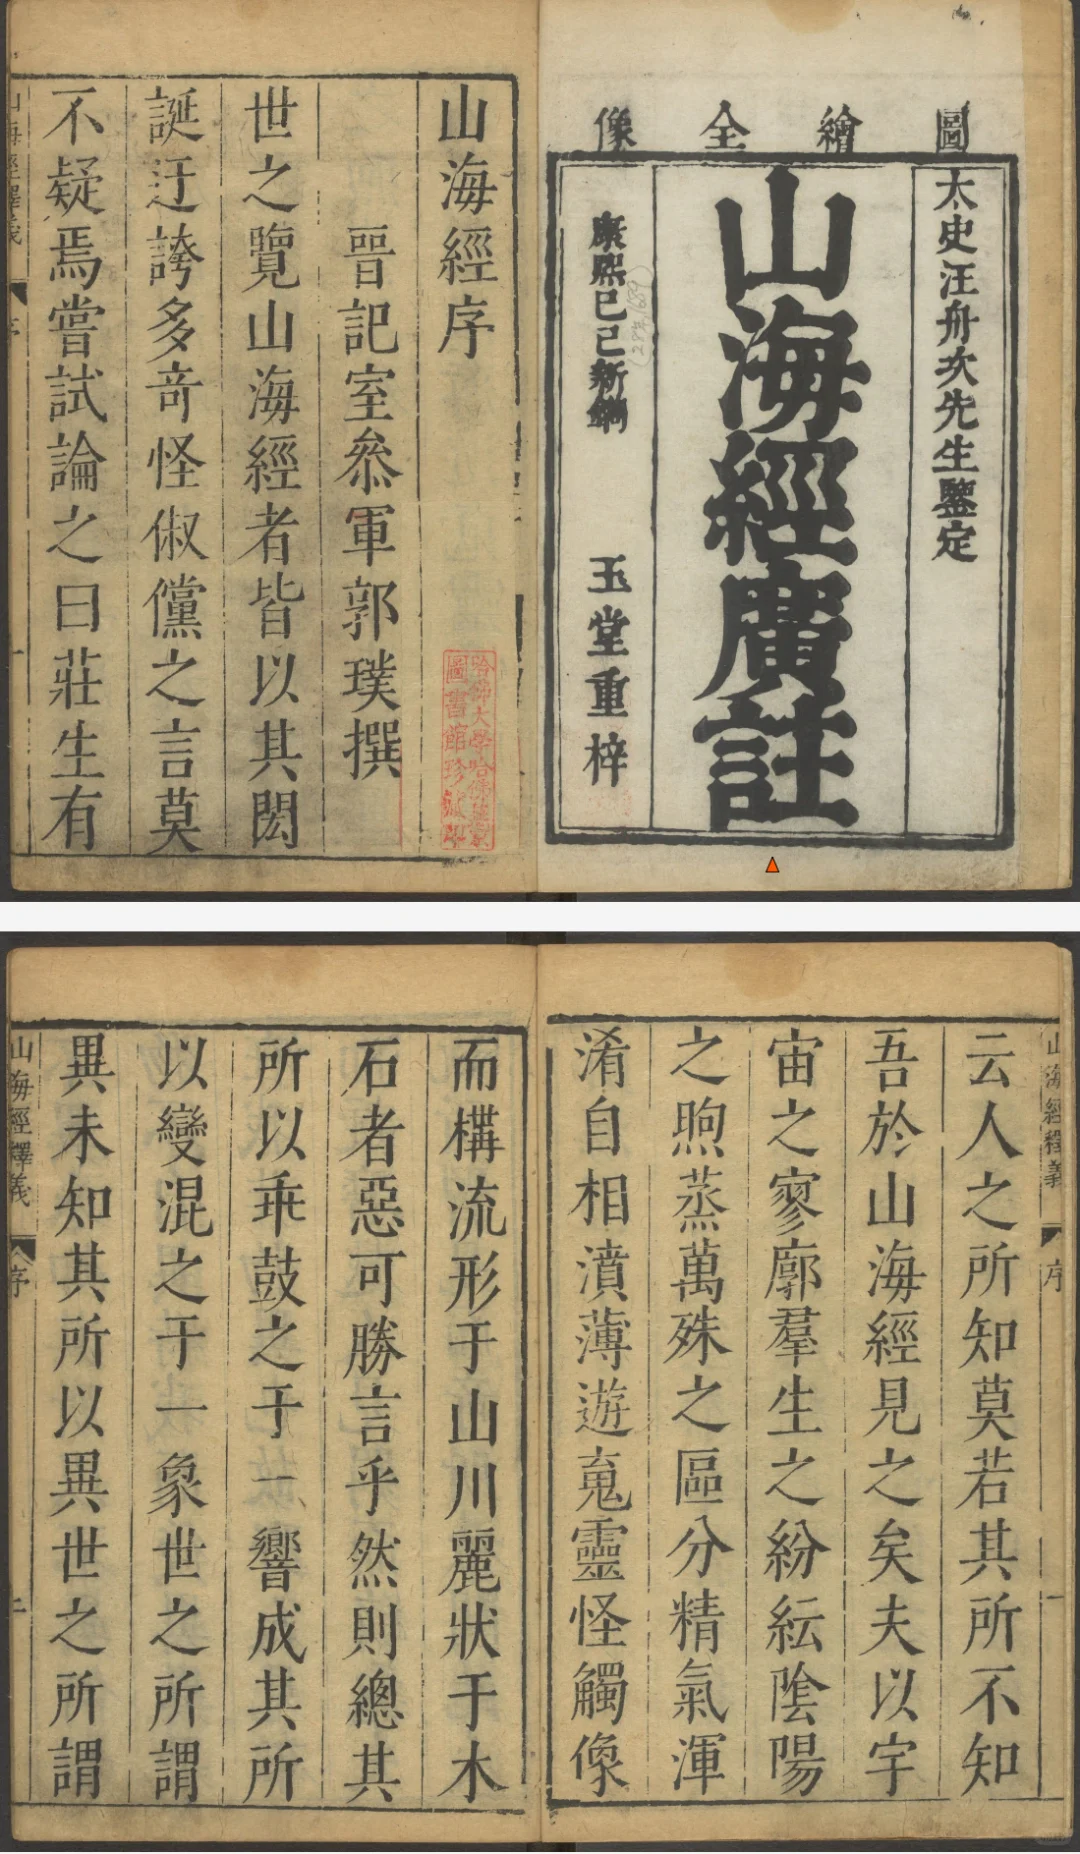 圖繪全像
太史汪舟次先生鑒定
山海經廣註
康熙己巳新鐫
(28年,1689)
玉堂重梓
山海經序
晉記室叅軍郭璞撰
世之覽山海經者皆以其閎
誕迂誇多奇怪俶儻之言莫
不疑焉嘗試論之曰莊生有
哈佛大學哈佛燕京
圖書館珍藏印
山海經釋義
序
一
云人之所知莫若其所不知
吾於山海經見之矣夫以宇
宙之寥廓羣生之紛紜陰陽
之煦蒸萬殊之區分精氣渾
淆自相濆薄遊䰟靈怪觸像
而構流形于山川麗狀于木
石者惡可勝言乎然則總其
所以乖鼓之于一響成其所
以變混之于一象世之所謂
異未知其所以異世之所謂
山海經釋義
序
一
山海經釋義
序
二